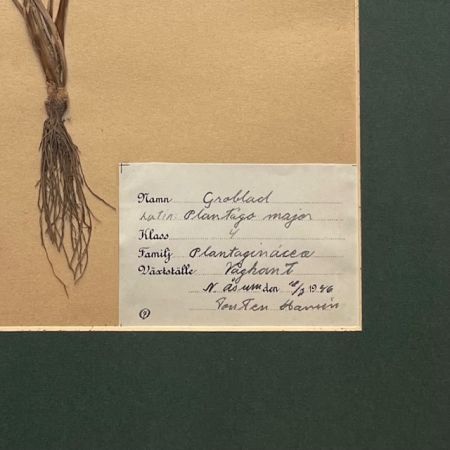 Namn Groblad
Latin: Plantago major
Klass 4
Familj Plantagináceæ
Växtställe Vägkant
N. Åsum den 10/7 1946